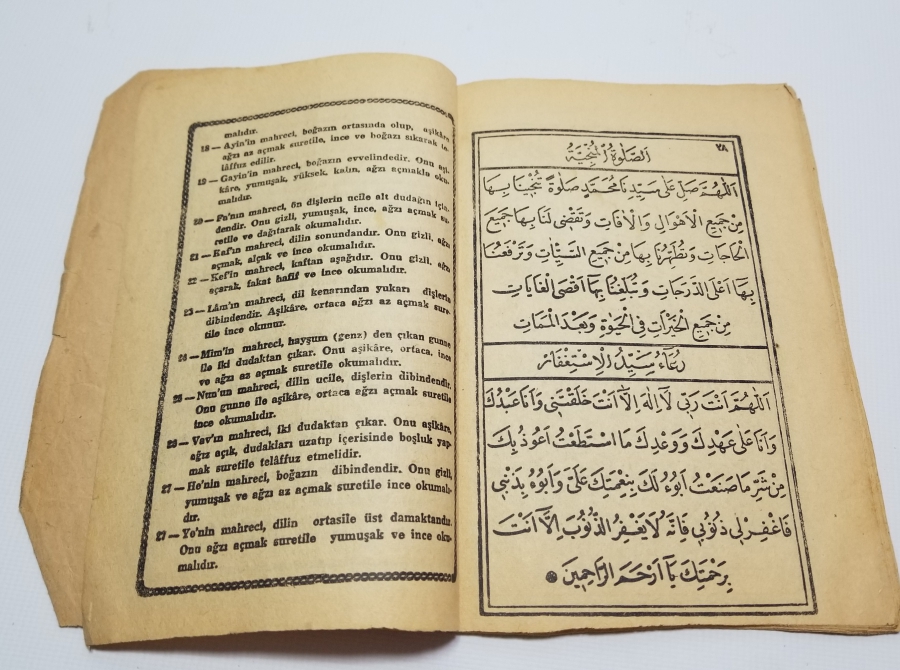 malıdır.
18 — Ayin'in mahreci, boğazın ortasında olup, aşikâre
ağzı az açmak suretile, ince ve boğazı sıkarak te-
lâffuz edilir.
19 — Gayin'in mahreci, boğazın evvelindedir. Onu aşi-
kâre, yumuşak, yüksek, kalın, ağzı açmakla oku-
malıdır.
20 — Fa'nın mahreci, ön dişlerin ucile alt dudağın için-
dendir. Onu gizli, yumuşak, ince, ağzı açmak su-
retile ve dağıtarak okumalıdır.
21 — Kaf'ın mahreci, dilin sonundandır. Onu gizli, ağzı
açmak, alçak ve ince okumalıdır.
22 — Kef'in mahreci, kaftan aşağıdır. Onu gizli, ağzı
açarak, fakat hafif ve ince okumalıdır.
23 — Lâm'ın mahreci, dil kenarından yukarı dişlerin
dibindendir. Aşikâre, ortaca ağzı az açmak sure-
tile ince okunur.
24 — Mim'in mahreci, hayşum (genz) den çıkan gunne
ile iki dudaktan çıkar. Onu aşikâre, ortaca, ince
ve ağzı az açmak suretile okumalıdır.
25 — Nun'un mahreci, dilin ucile, dişlerin dibindendir.
Onu gunne ile aşikâre, ortaca ağzı açmak suretile
ince okumalıdır.
26 — Vav'ın mahreci, iki dudaktan çıkar. Onu aşikâre,
ağzı açık, dudakları uzatıp içerisinde boşluk yap-
mak suretile telâffuz etmelidir.
27 — He'nin mahreci, boğazın dibindendir. Onu gizli,
yumuşak ve ağzı az açmak suretile ince okumalı-
dır.
27 — Ye'nin mahreci, dilin ortasile üst damaktandır.
Onu ağzı açmak suretile yumuşak ve ince oku-
malıdır.
٧٨
اَلصَّلٰوةُ الْمُنْجِيَةُ
اَللّٰهُمَّ صَلِّ عَلٰى سَيِّدِنَا مُحَمَّدٍ صَلٰوةً تُنْجِينَا بِهَا
مِنْ جَمِيعِ الْاَهْوَالِ وَالْاٰفَاتِ وَتَقْضِى لَنَا بِهَا جَمِيعَ
الْحَاجَاتِ وَتُطَهِّرُنَا بِهَا مِنْ جَمِيعِ السَّيِّئَاتِ وَتَرْفَعُنَا
بِهَا اَعْلَى الدَّرَجَاتِ وَتُبَلِّغُنَا بِهَا اَقْصَى الْغَايَاتِ
مِنْ جَمِيعِ الْخَيْرَاتِ فِى الْحَيٰوةِ وَبَعْدَ الْمَمَاتِ
دُعَاءُ سَيِّدُ الْاِسْتِغْفَارِ
اَللّٰهُمَّ اَنْتَ رَبِّى لَا اِلٰهَ اِلَّا اَنْتَ خَلَقْتَنِى وَاَنَا عَبْدُكَ
وَاَنَا عَلٰى عَهْدِكَ وَوَعْدِكَ مَا اسْتَطَعْتُ اَعُوذُ بِكَ
مِنْ شَرِّ مَا صَنَعْتُ اَبُوءُ لَكَ بِنِعْمَتِكَ عَلَىَّ وَاَبُوءُ بِذَنْبِى
فَاغْفِرْ لِى ذُنُوبِى فَاِنَّهُ لَا يَغْفِرُ الذُّنُوبَ اِلَّا اَنْتَ
بِرَحْمَتِكَ يَا اَرْحَمَ الرَّاحِمِينَ